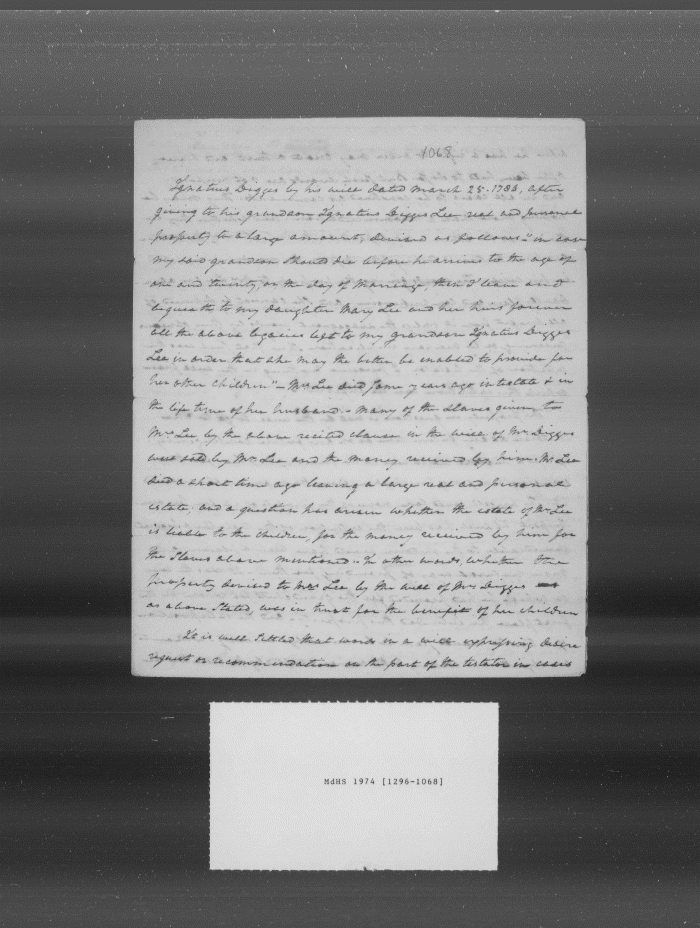 1068
Ignatius Digges by his will dated March 25. 1784, after
giving to his grandson Ignatius Digges Lee real and personal
property to a large amount, devised as follows "in case
my said grandson should die before he arrives to the age of
one and twenty, or the day of Marriage, then I leave and
bequeath to my daughter Mary Lee and her heirs forever
all the above legacies left to my grandson Ignatius Digges
Lee in order that she may the better be enabled to provide for
her other children" – Mrs Lee died some years ago intestate & in
the life time of her husband. – Many of the slaves given to
Mrs Lee by the above recited clause in the will of Mr Digges
were sold by Mr Lee and the money received by him. Mr Lee
died a short time ago leaving a large real and personal
estate; and a question has arisen whether the estate of Mr Lee
is liable to the children, for the money received by him for
the Slaves above mentioned – In other words, whether the
property devised to Mrs Lee by the will of Mr Digges
as above stated, was in trust for the benefit of her children
It is well settled that words in a will expressing desire
request or recommendation on the part of the testator in cases
MdHS 1974 [1296-1068]